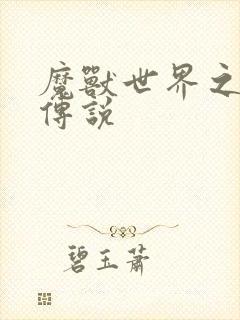 魔獸世界之
傳說
碧玉蕭